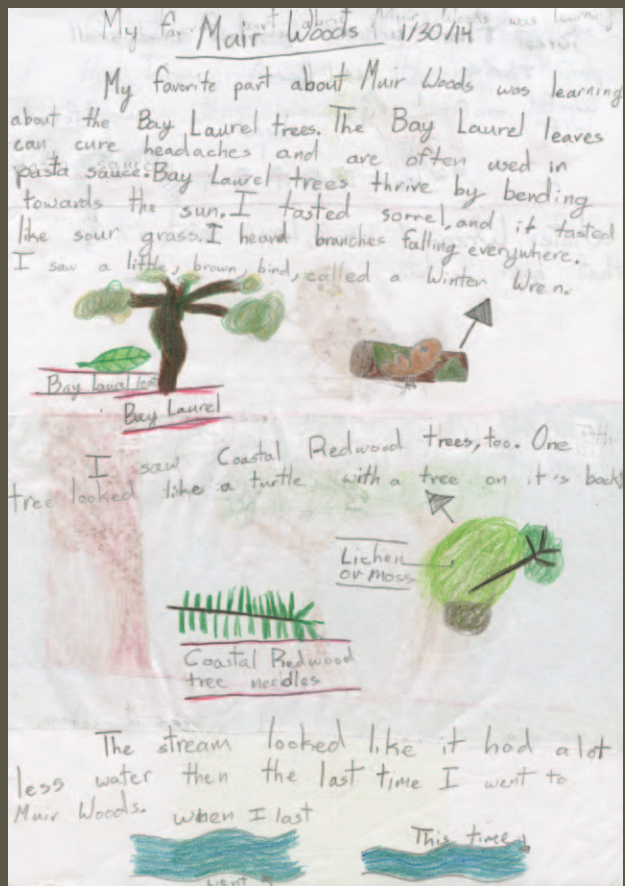 Muir Woods 1/30/14
My favorite part about Muir Woods was learning
about the Bay Laurel trees. The Bay Laurel leaves
can cure headaches and are often used in
pasta sauce. Bay Laurel trees thrive by bending
towards the sun. I tasted sorrel, and it tasted
like sour grass. I heard branches falling everywhere.
I saw a little, brown, bind, called a Winter Wren.
Bay Laurel leaf
Bay Laurel
I saw Coastal Redwood trees, too. One
tree looked like a turtle with a tree on it's back
Lichen
or moss
Coastal Redwood
tree needles
The stream looked like it had a lot
less water then the last time I went to
Muir Woods.
when I last
went
This time